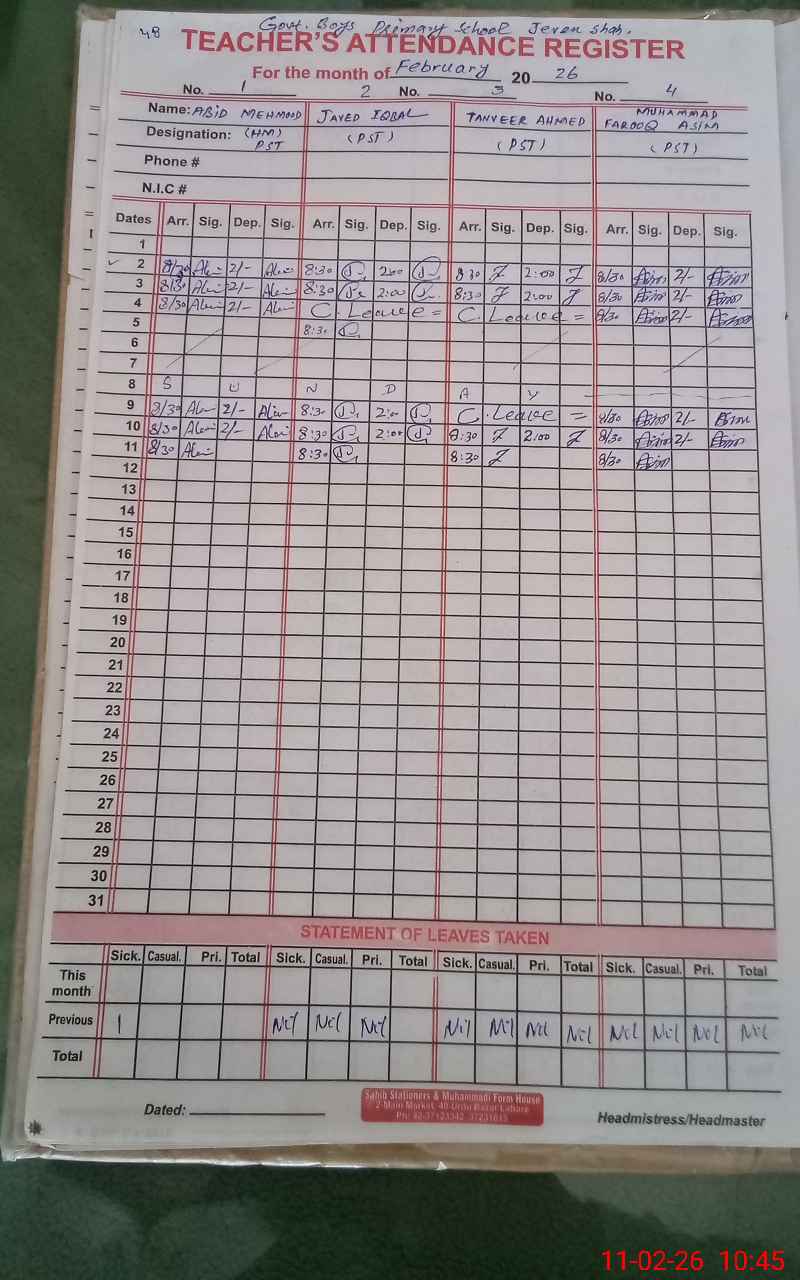 48 Govt. Boys Primary School Jevan Shah.
TEACHER'S ATTENDANCE REGISTER
For the month of February 2026
No. 1 2 No. 3 No. 4
Name: ABID MEHMOOD JAVED IQBAL TANVEER AHMED MUHAMMAD FAROOQ ASIM
Designation: (HM) PST (PST) (PST) (PST)
Phone #
N.I.C #
Dates Arr. Sig. Dep. Sig. Arr. Sig. Dep. Sig. Arr. Sig. Dep. Sig. Arr. Sig. Dep. Sig.
1
2 8/30 2/- 8:30 2:00 8:30 2:00 8/30 2/-
3 8/30 2/- 8:30 2:00 8:30 2:00 8/30 2/-
4 8/30 2/- C. Leave = C. Leave = 8/30 2/-
5 8:30
6
7
8 S U N D A Y
9 8/30 2/- 8:30 2:00 C. Leave = 8/30 2/-
10 8/30 2/- 8:30 2:00 8:30 2:00 8/30 2/-
11 8/30 8:30 8:30 8/30
12
13
14
15
16
17
18
19
20
21
22
23
24
25
26
27
28
29
30
31
STATEMENT OF LEAVES TAKEN
Sick. Casual. Pri. Total Sick. Casual. Pri. Total Sick. Casual. Pri. Total Sick. Casual. Pri. Total
This month
Previous 1 Nil Nil Nil Nil Nil Nil Nil Nil Nil Nil Nil
Total
Dated:
Sahib Stationers & Muhammadi Form House
2-Main Market, 40-Urdu Bazar Lahore
Headmistress/Headmaster
11-02-26 10:45